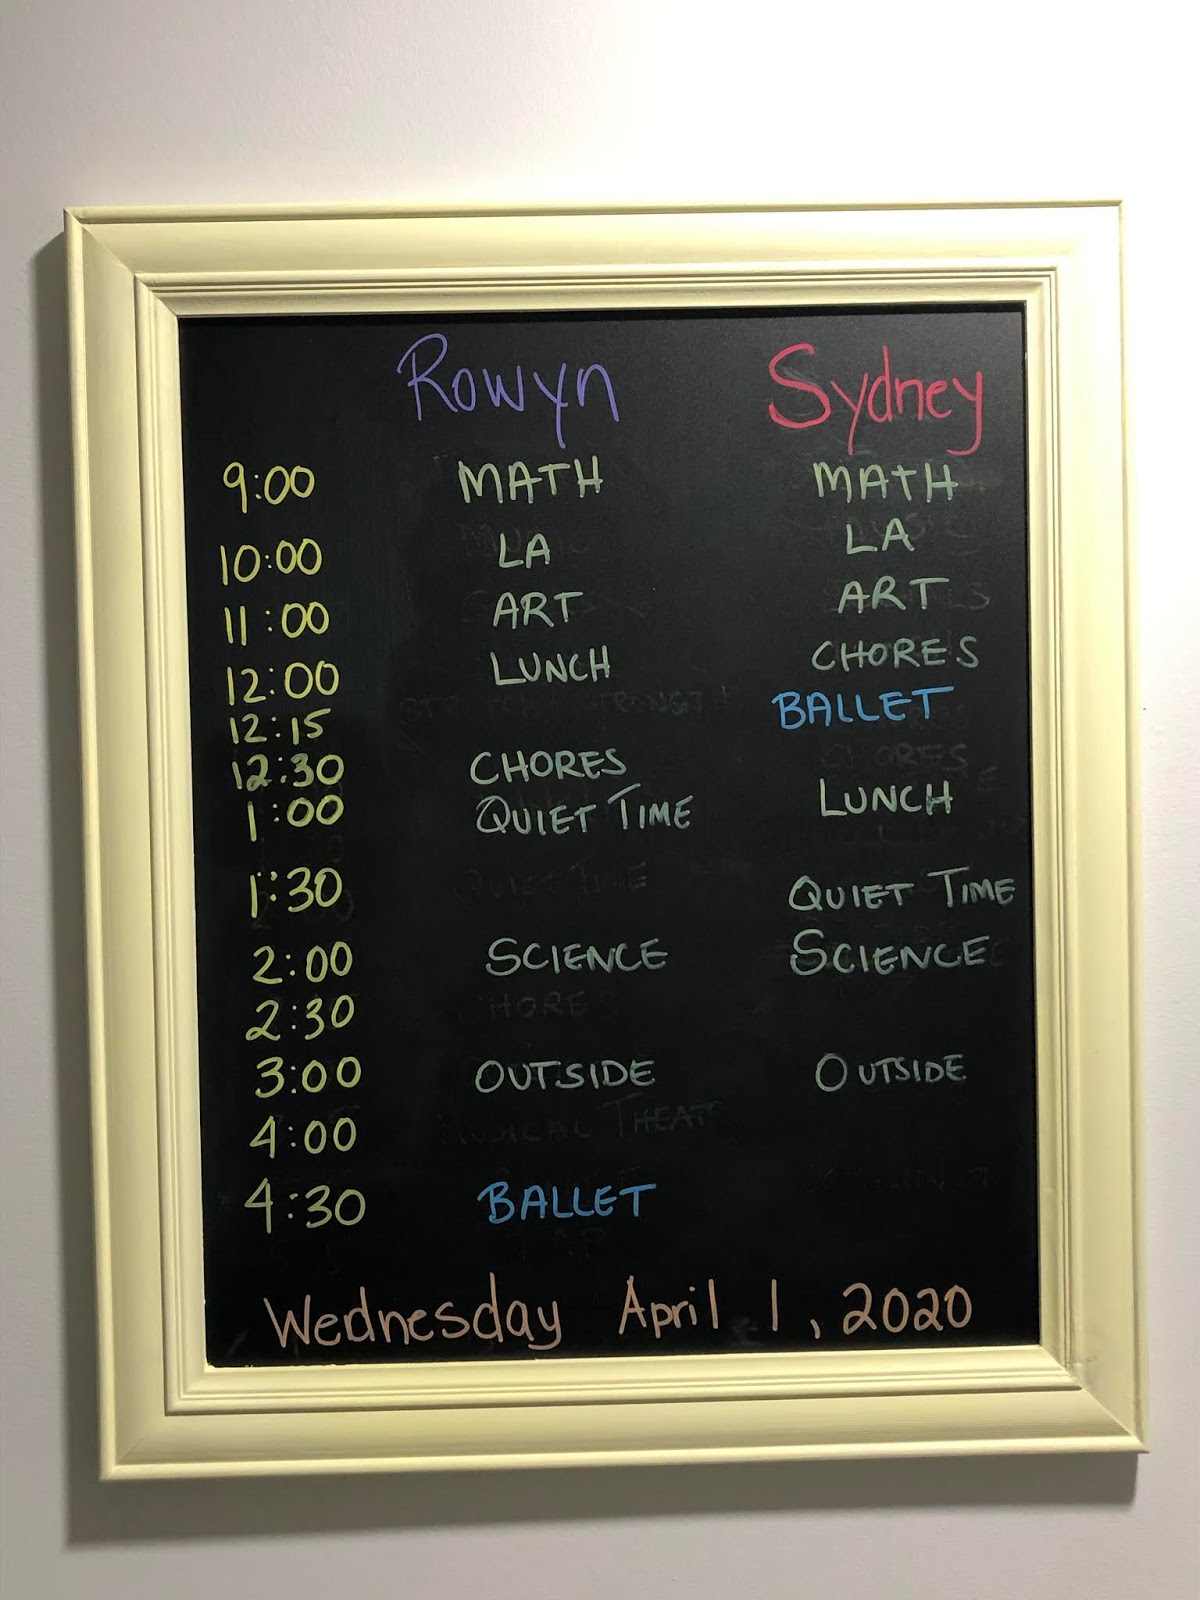 Rowyn Sydney
9:00 MATH MATH
10:00 LA LA
11:00 ART ART
12:00 LUNCH CHORES
12:15 BALLET
12:30 CHORES
1:00 QUIET TIME LUNCH
1:30 QUIET TIME
2:00 SCIENCE SCIENCE
2:30
3:00 OUTSIDE OUTSIDE
4:00
4:30 BALLET
Wednesday April 1, 2020